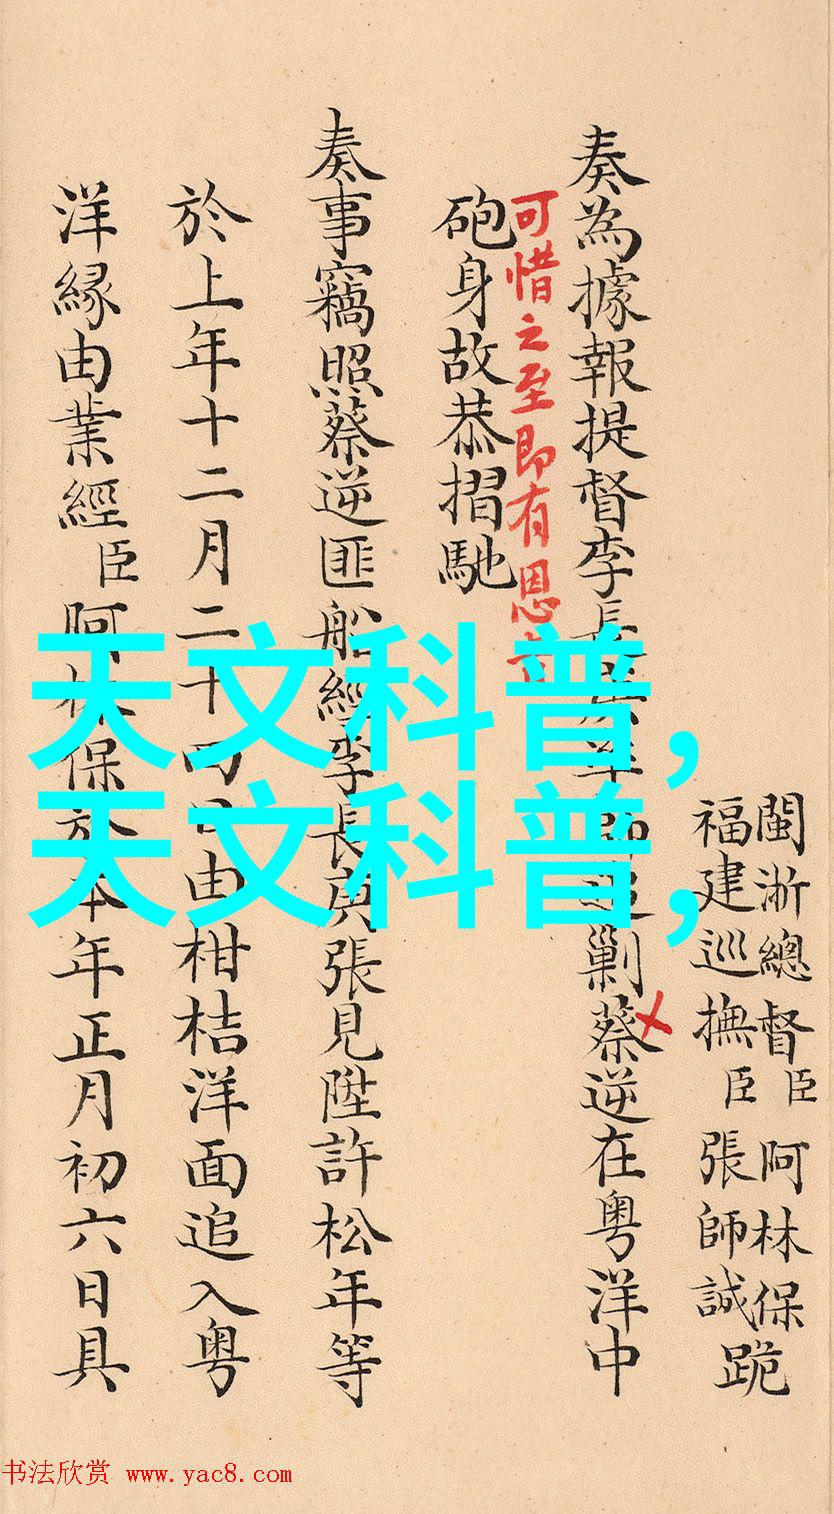 閩浙總督臣阿林保跪
福建巡撫臣張師誠
奏為據報提督李長剿蔡逆在粵洋中
可惜之至即有恩
砲身故恭摺馳
奏事竊照蔡逆匪船經李長庚張見陞許松年等
於上年十二月二十由柑桔洋面追入粵
洋緣由業經臣阿保本年正月初六日具
天文科普,
天文科普,
书法欣赏 www.yac8.com